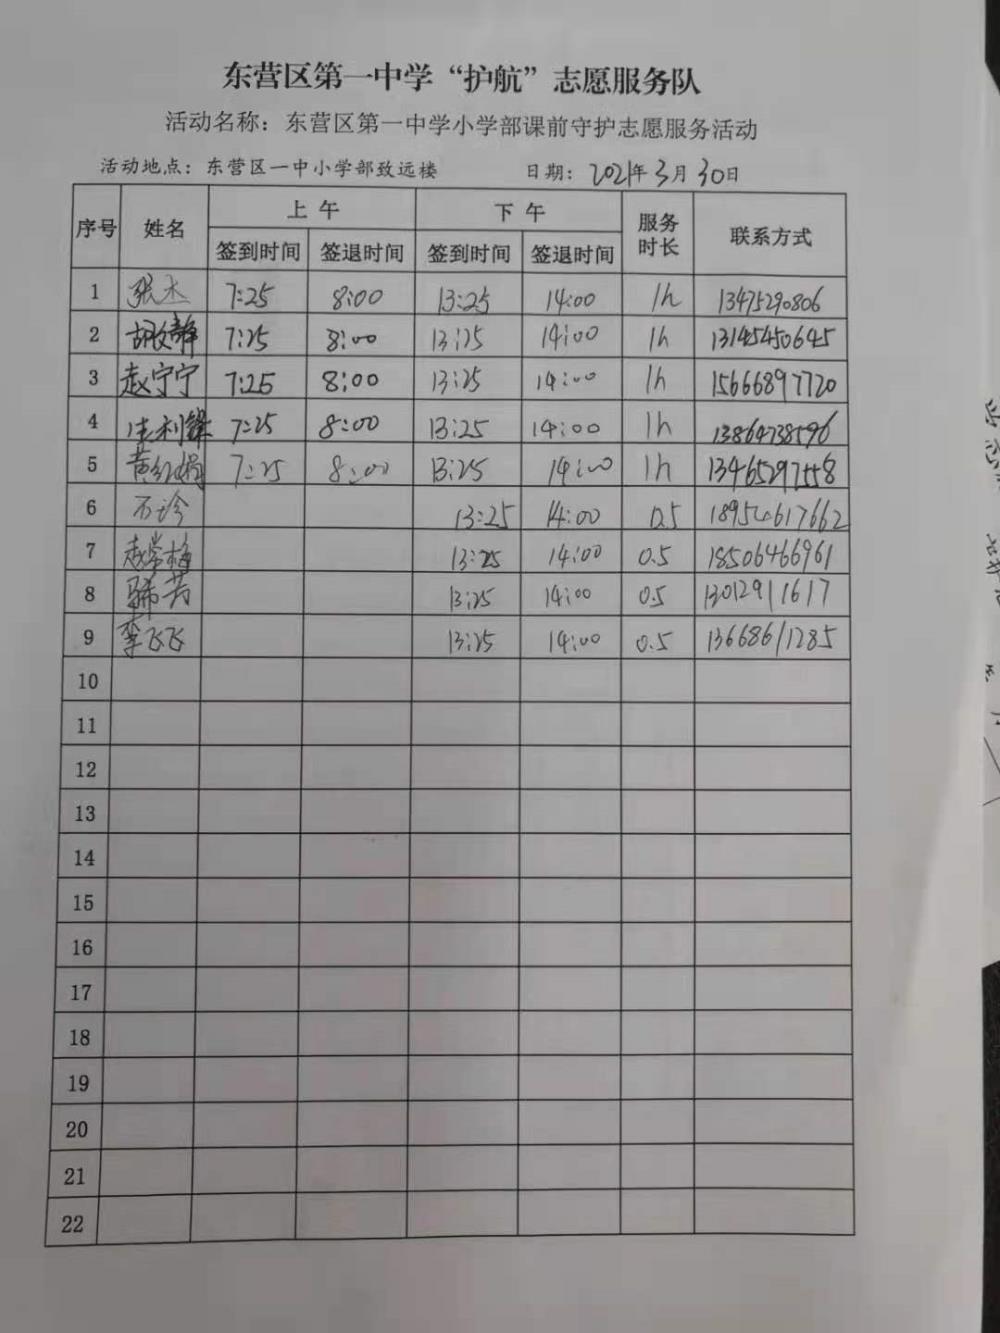 东营区第一中学“护航”志愿服务队
活动名称：东营区第一中学小学部课前守护志愿服务活动
活动地点：东营区一中小学部致远楼 日期：2021年3月30日
序号 姓名 上午 下午 服务时长 联系方式
签到时间 签退时间 签到时间 签退时间
1 张杰 7:25 8:00 13:25 14:00 1h 13475290806
2 胡文静 7:25 8:00 13:25 14:00 1h 13145450645
3 赵宁宁 7:25 8:00 13:25 14:00 1h 15666897720
4 7:25 8:00 13:25 14:00 1h 13864738596
5 黄红娟 7:25 8:00 13:25 14:00 1h 13465297558
6 石珍 13:25 14:00 0.5
7 赵常梅 13:25 14:00 0.5 18506466961
8 13:25 14:00 0.5 13012911617
9 李飞飞 13:25 14:00 0.5 13668611285
10
11
12
13
14
15
16
17
18
19
20
21
22